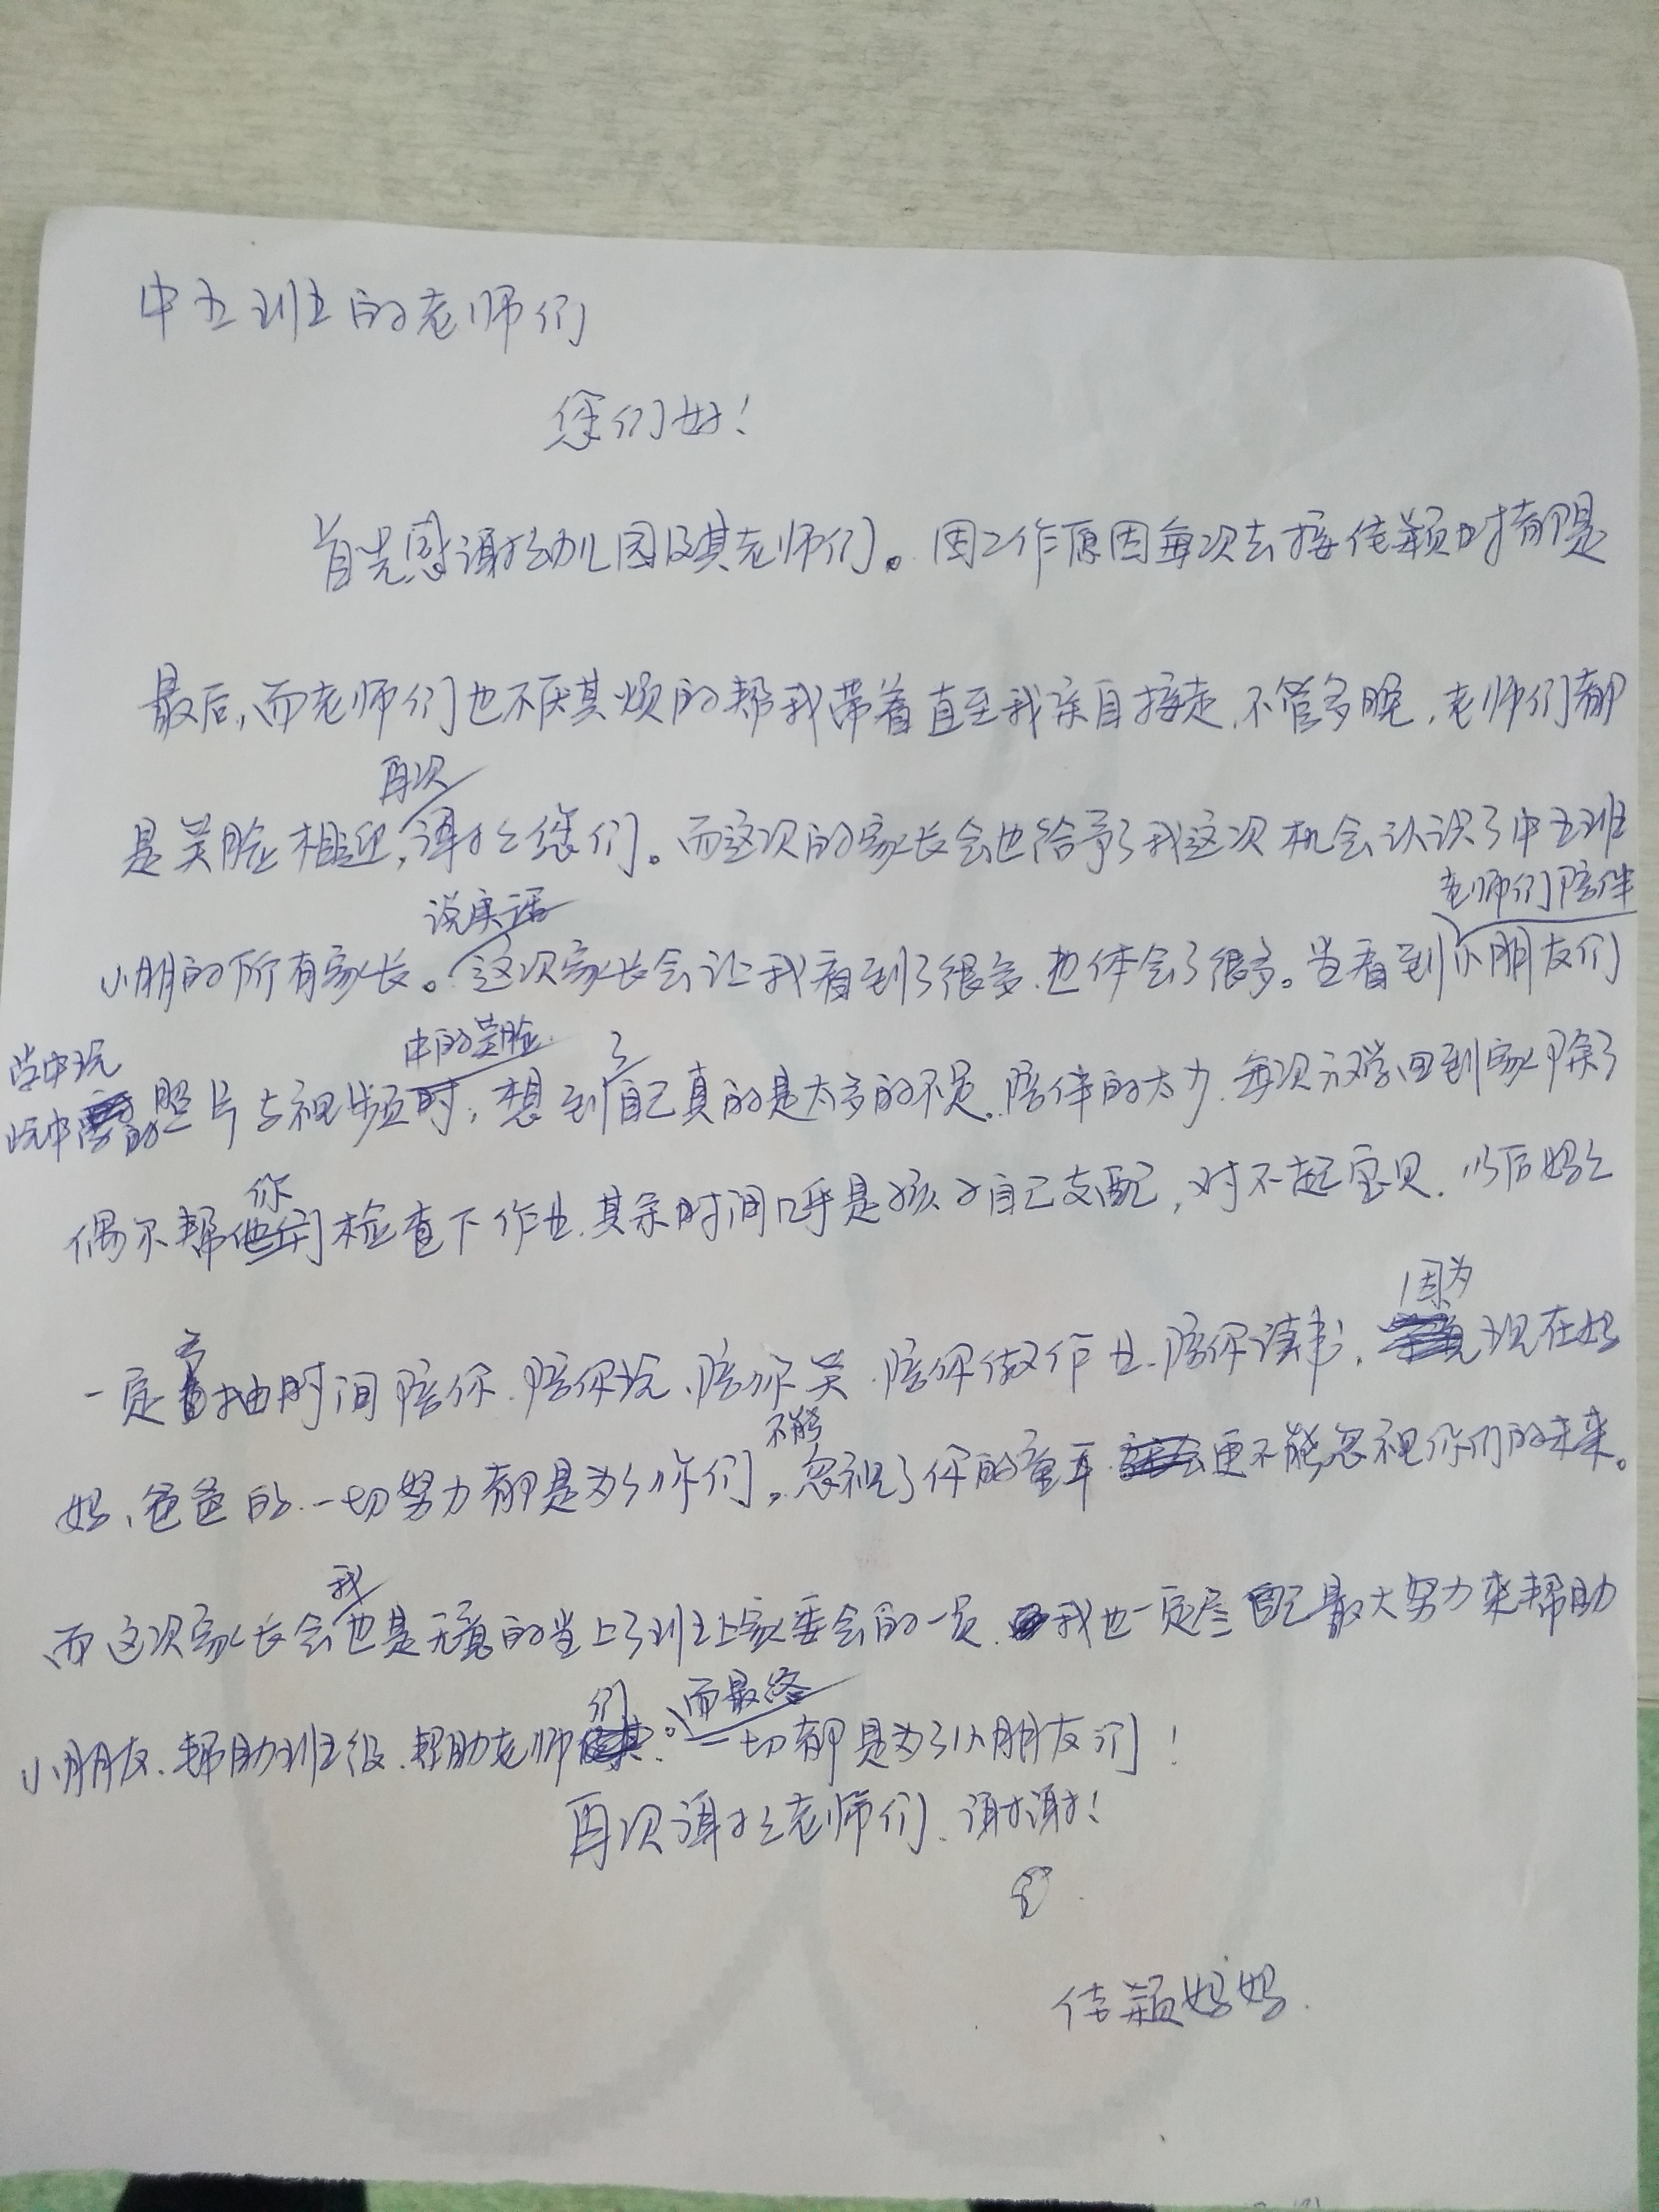 中五班的老师们
您们好!
首先感谢幼儿园及其老师们。因工作原因每次去接佳颖时都是
最后,而老师们也不厌其烦的帮我带着直至我亲自接走,不管多晚,老师们都
再次
是笑脸相迎,谢谢您们。而这次的家长会也给予了我这次机会认识了中五班
说实话
老师们陪伴
小朋的所有家长。这次家长会让我看到了很多,也体会了很多。当看到小朋友们
学中玩
中的笑脸
了
玩中学的照片与视频时,想到自己真的是太多的不足,陪伴的太少,每次放学回到家除了
你
偶尔帮检查下作业,其余时间几乎是孩子自己支配,对不起宝贝,以后妈妈
去
因为
一定抽时间陪你,陪你玩、陪你笑,陪你做作业,陪你读书,现在妈
不能
妈、爸爸的一切努力都是为了你们。忽视了你的童年,更不能忽视你们的未来。
我
而这次家长会也是无意的当上了班上家委会的一员,我也一定尽自己最大努力来帮助
们
而最终
小朋友、帮助班级、帮助老师。一切都是为了小朋友们!
再次谢谢老师们、谢谢!
佳颖妈妈.